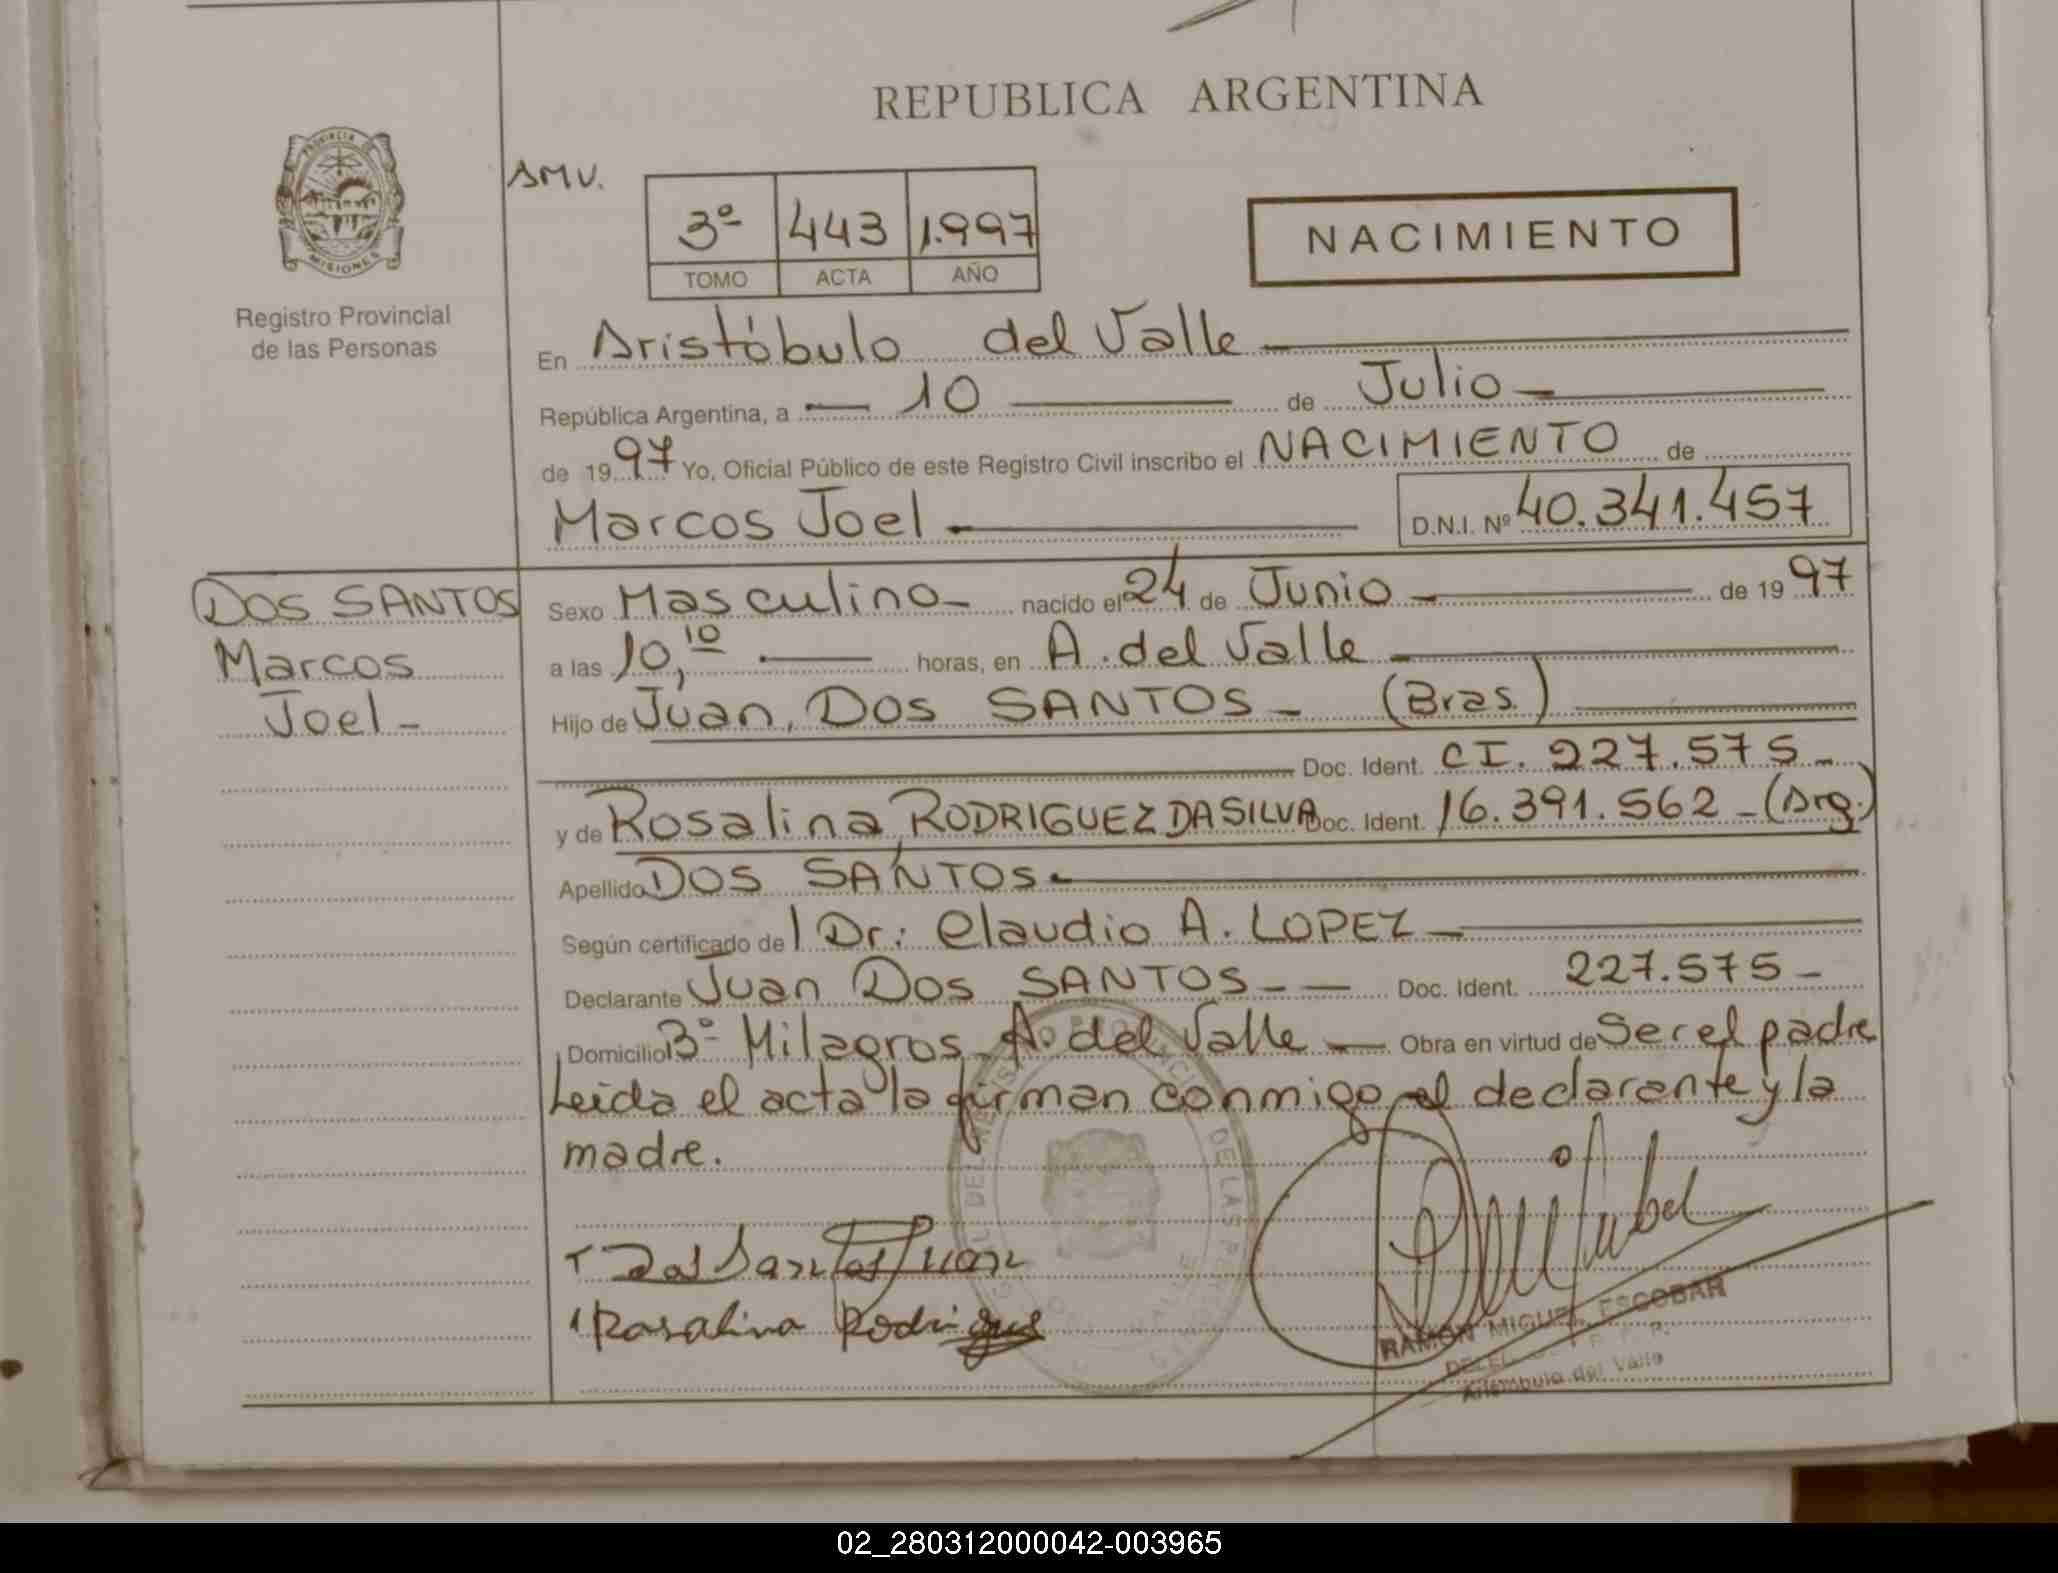 REPUBLICA ARGENTINA
PROVINCIA DE
MISIONES
Registro Provincial
de las Personas
AMV.
3º 443 1.997
TOMO ACTA AÑO
NACIMIENTO
En Aristóbulo del Valle
República Argentina, a 10 de Julio
de 19 97 Yo, Oficial Público de este Registro Civil inscribo el NACIMIENTO de
Marcos Joel D.N.I. Nº 40.341.457
DOS SANTOS
Marcos
Joel -
Sexo Masculino nacido el 24 de Junio de 19 97
a las 10,10 horas, en A. del Valle
Hijo de Juan, DOS SANTOS - (Bras.)
Doc. Ident. CI. 227.575 -
y de Rosalina RODRIGUEZ DA SILVA Doc. Ident. 16.391.562 - (Arg.)
Apellido DOS SANTOS
Según certificado del Dr: Claudio A. LOPEZ
Declarante Juan DOS SANTOS Doc. Ident. 227.575 -
Domicilio Bº Milagros - A. del Valle Obra en virtud de Ser el padre
Leida el acta la firman conmigo el declarante y la
madre.
Dos Santos Juan
Rosalina Rodrigue
RAMON MIGUEL ESCOBAR
Aristobulo del Valle
02_280312000042-003965